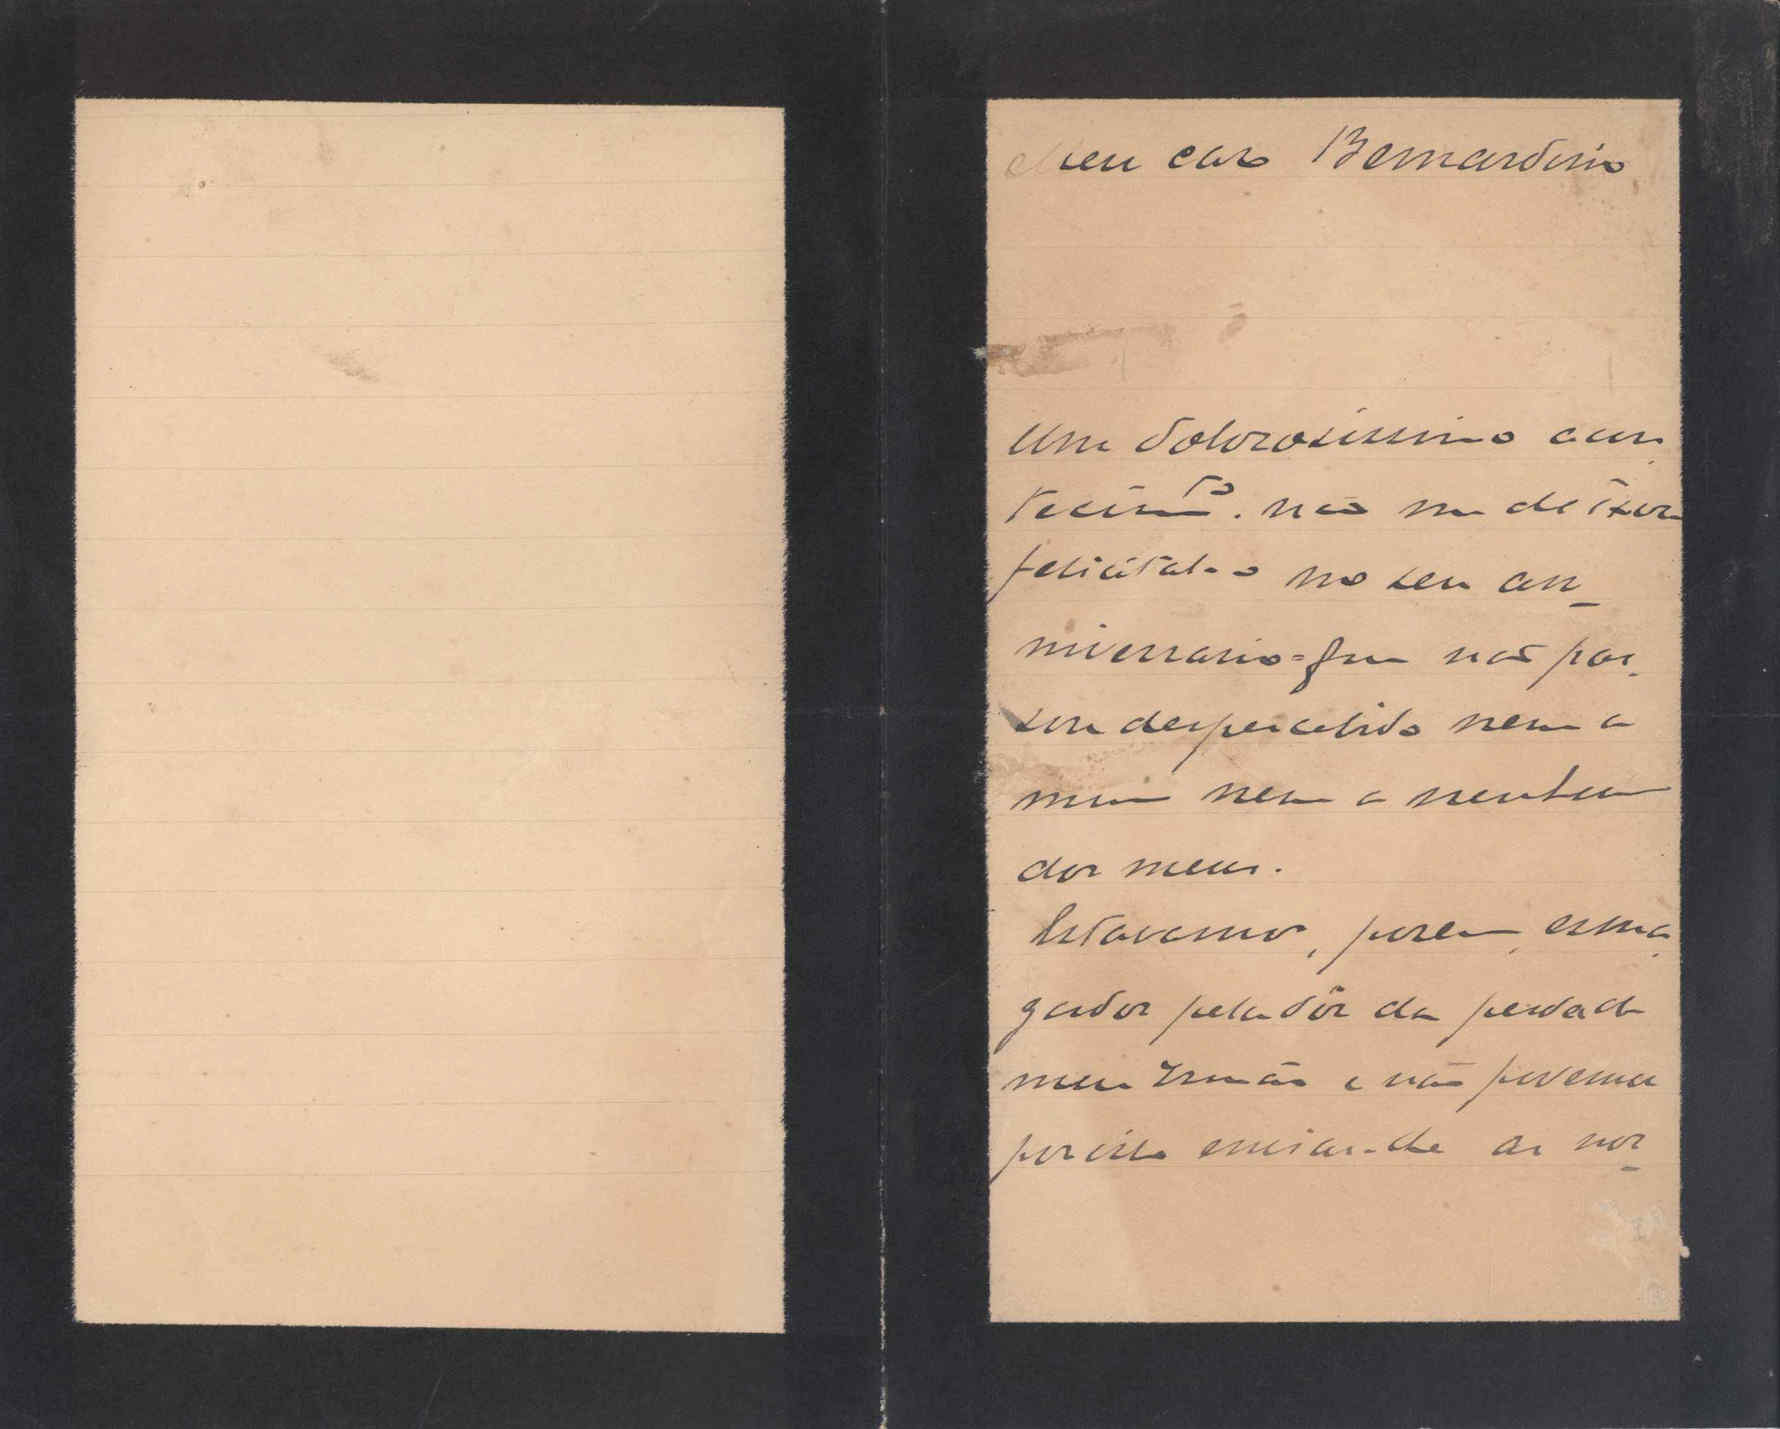 Meu caro Bernardino
Um dolorosissimo acon-
tecim.to não me deixou
felicital-o no seu an-
niversario = que não pas-
sou despercebido nem a
mim nem a nenhum
dos meus.
Estavamos, porem, esma-
gados pela dôr da perda de
meu Irmão e não podemos
por isso enviar-lhe as nos-